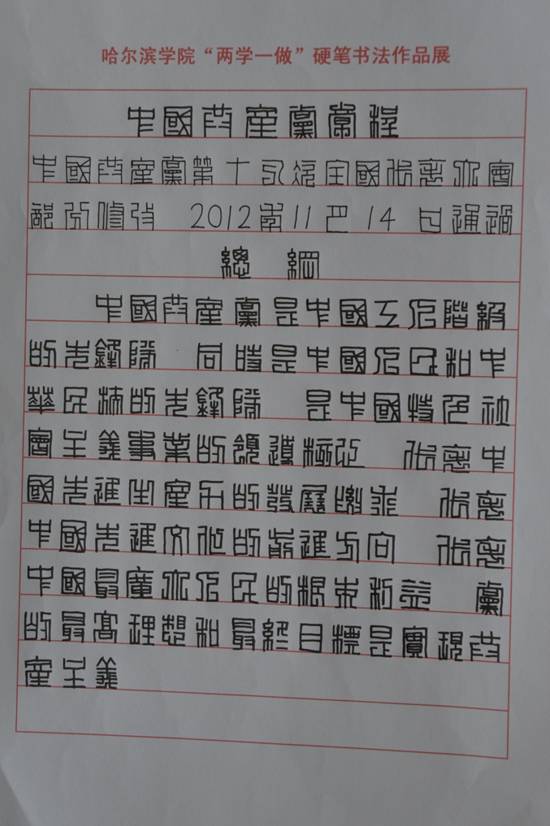 哈尔滨学院“两学一做”硬笔书法作品展
中國共産黨黨章程
中國共産黨第十八次全國代表大會
部分修改 2012年11月14日通過
總綱
中國共産黨是中國工人階級
的先鋒隊 同時是中國人民和中
華民族的先鋒隊 是中國特色社
會主義事業的領導核心 代表中
國先進生産力的發展要求 代表
中國先進文化的前進方向 代表
中國最廣大人民的根本利益 黨
的最高理想和最終目標是實現共
産主義